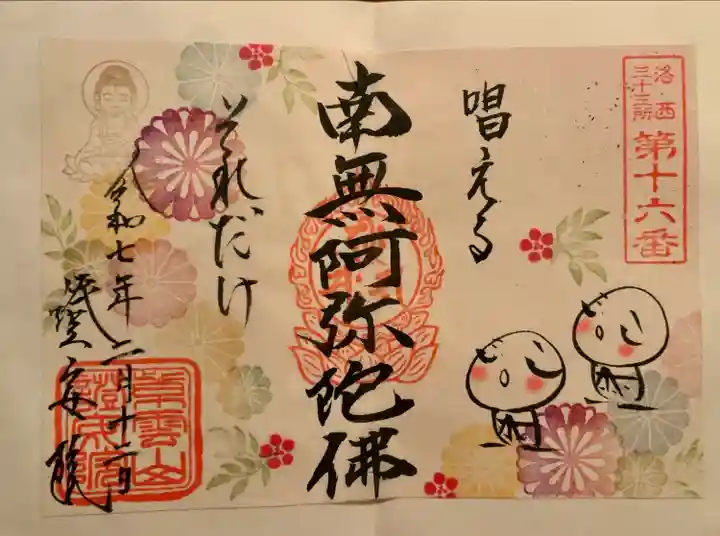 洛西
三十三所
第十六番
唱える
南無阿弥陀佛
それだけ
令和七年二月十二日
證安院